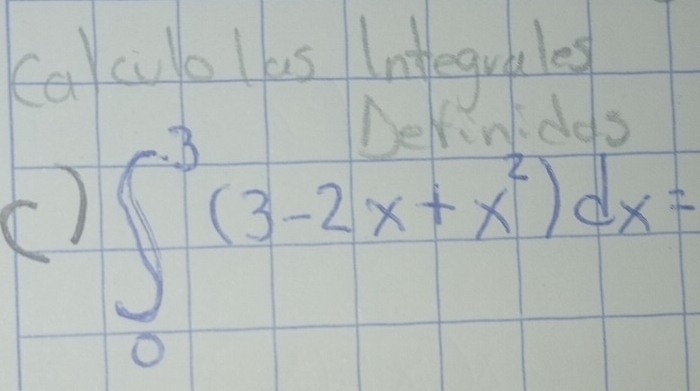 Calculo las Integrales
Definidas
c) ∫₀³ (3-2x+x²)dx=